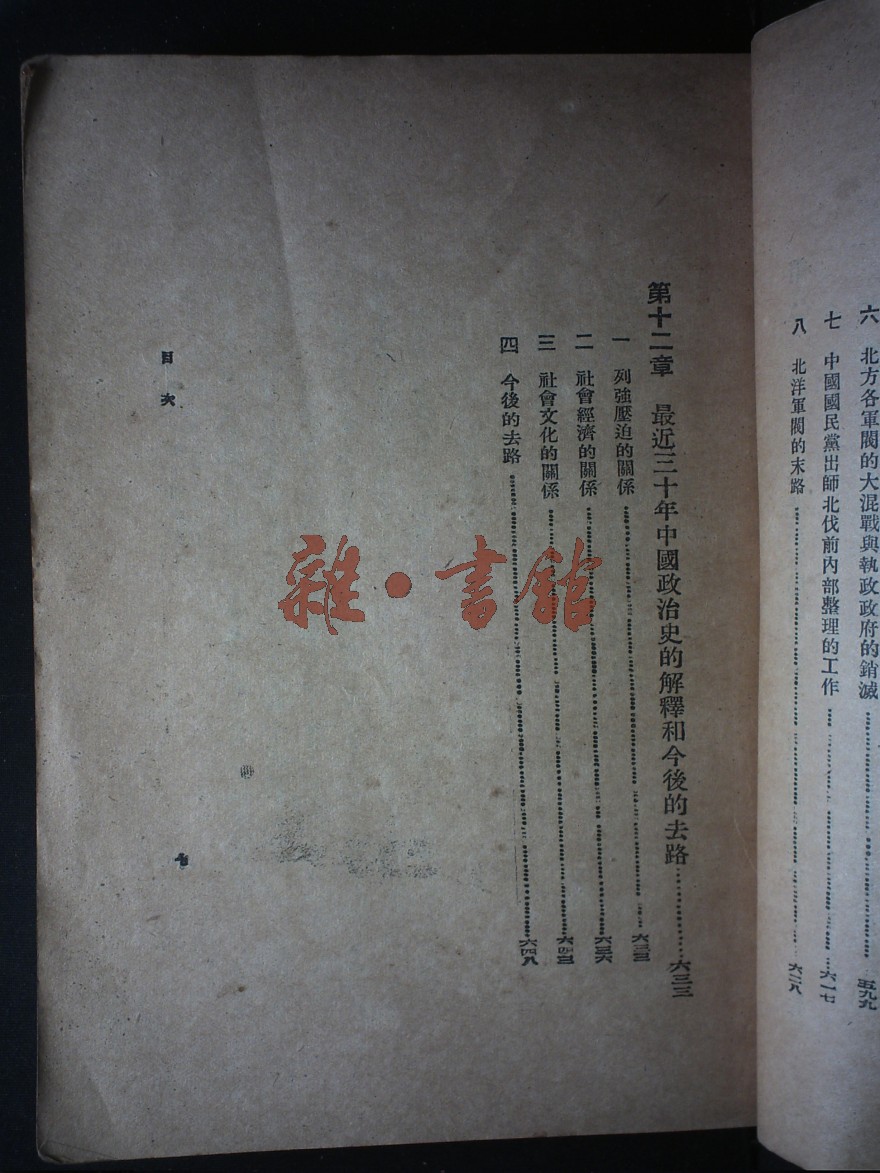 六　北方各軍閥的大混戰與執政政府的銷滅……五九九
七　中國國民黨出師北伐前內部整理的工作……六一七
八　北洋軍閥的末路……六二八
第十二章　最近三十年中國政治史的解釋和今後的去路……六三三
一　列強壓迫的關係……六三三
二　社會經濟的關係……六三六
三　社會文化的關係……六四三
四　今後的去路……六四八
目次
十
雜·書館